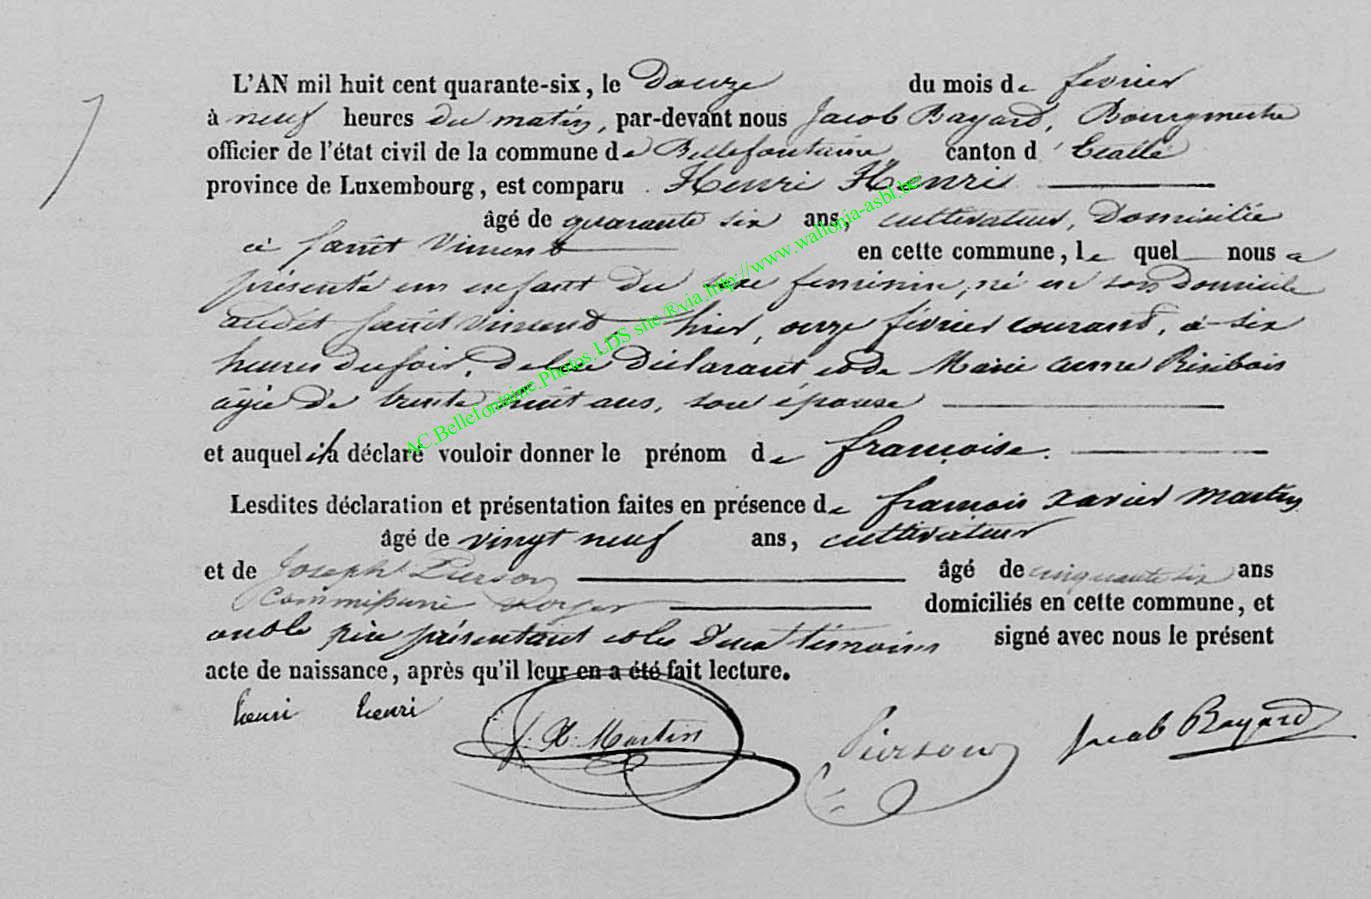 L'AN mil huit cent quarante-six, le Douze du mois de fevrier
à neuf heures du matin, par-devant nous Jacob Bayard, Bourgmestre
officier de l'état civil de la commune de Bellefontaine canton d'Etalle
province de Luxembourg, est comparu Henri Henri
âgé de quarante six ans, cultivateur, Domicilié
à saint Vincent en cette commune, le quel nous a
présenté un enfant du sexe feminin, né en son Domicile
audit saint Vincent, hier, onze février courant, à six
heures du soir, de lui Déclarant et de Marie anne
âgée de trente huit ans, son épouse
et auquel il a déclaré vouloir donner le prénom de françoise.
Lesdites déclaration et présentation faites en présence de françois xavier martin
âgé de vingt neuf ans, cultivateur
et de Joseph Pierson âgé de cinquante six ans
domiciliés en cette commune, et
ont le père présentant et les Deux témoins signé avec nous le présent
acte de naissance, après qu'il leur en a été fait lecture.
henri henri f. X. Martin Pierson Jacob Bayard
AC.Bellefontaine.Photos.LDS site/®via.http://www.wallonia-asbl.be/